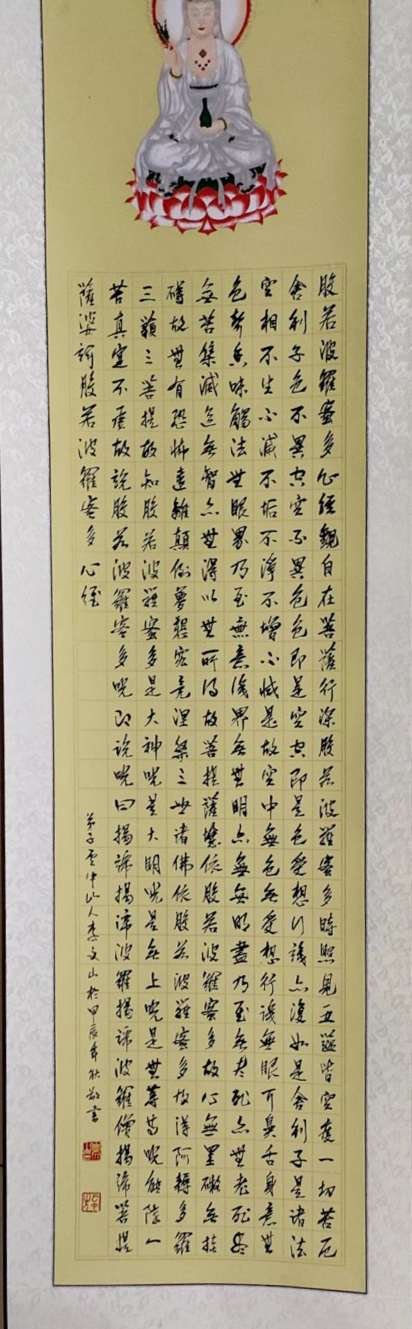 般若波羅蜜多心經觀自在菩薩行深般若波羅蜜多時照見五蘊皆空度一切苦厄
舍利子色不異空空不異色色即是空空即是色受想行識亦復如是舍利子是諸法
空相不生不滅不垢不淨不增不減是故空中無色無受想行識無眼耳鼻舌身意無
色聲香味觸法無眼界乃至無意識界無無明亦無無明盡乃至無老死亦無老死盡
無苦集滅道無智亦無得以無所得故菩提薩埵依般若波羅蜜多故心無罣礙無掛
礙故無有恐怖遠離顛倒夢想究竟涅槃三世諸佛依般若波羅蜜多故得阿耨多羅
三藐三菩提故知般若波羅蜜多是大神咒是大明咒是無上咒是無等等咒能除一
苦真實不虛故說般若波羅蜜多咒即說咒曰揭諦揭諦波羅揭諦波羅僧揭諦菩提
薩婆訶般若波羅蜜多心經
弟子雲中山人李文山於甲辰年秋敬書